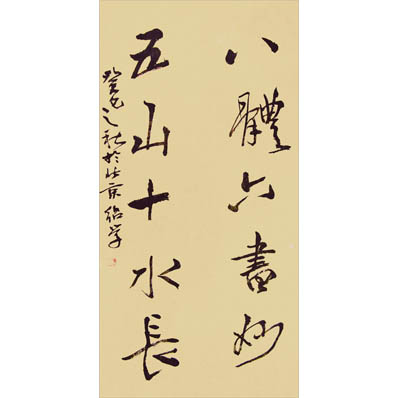 八體六書妙
五山十水長
癸巳之秋於北京紹学